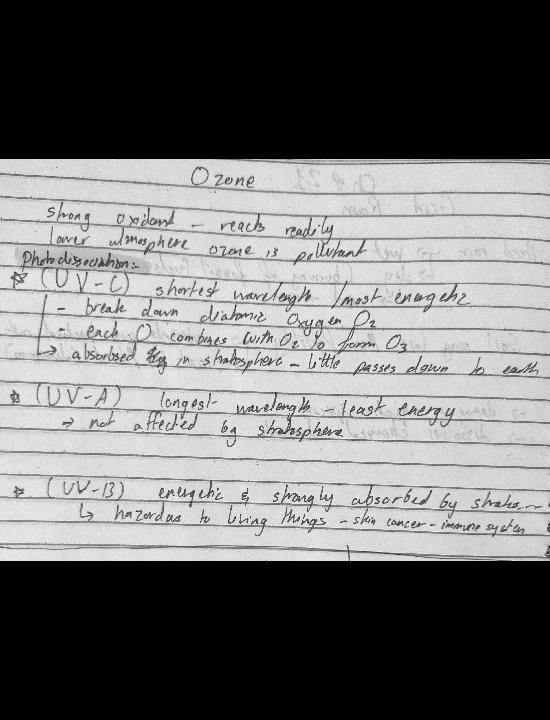 Ozone
strong oxidant - reacts readily
lower atmosphere ozone is pollutant
Photodissociation:-
(UV-C) shortest wavelength / most energetic
- break down diatomic Oxygen O2
- each O combines with O2 to form O3
→ absorbed in stratosphere - little passes down to earth
(UV-A) longest wavelength - least energy
→ not affected by stratosphere
(UV-B) energetic & strongly absorbed by strato...
↳ hazordas to living things - skin cancer - immune system